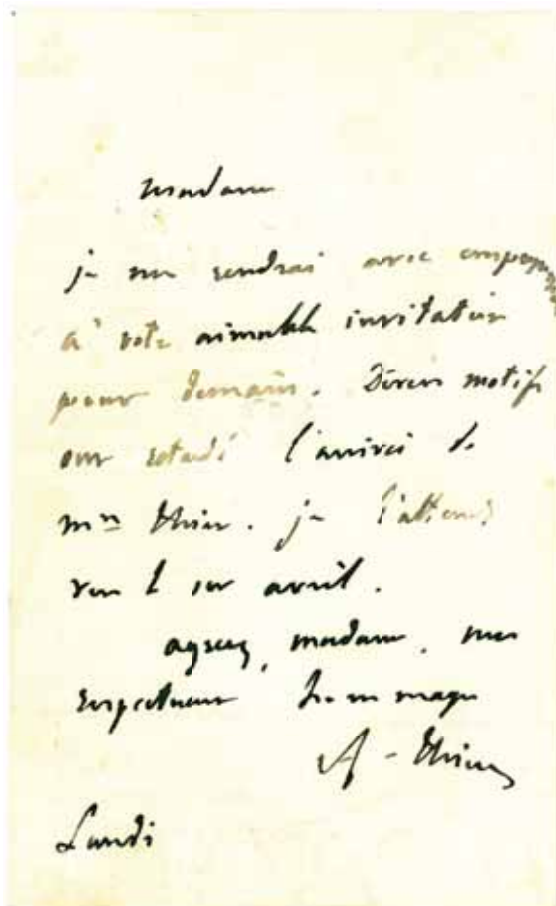 Madame
je me rendrai avec empressement
à votre aimable invitation
pour demain. Divers motifs
ont retardé l'arrivée de
Mme Thiers. je l'attends
vers le 1er avril.
agréez, madame, mes
respectueux hommages
A. Thiers
Lundi